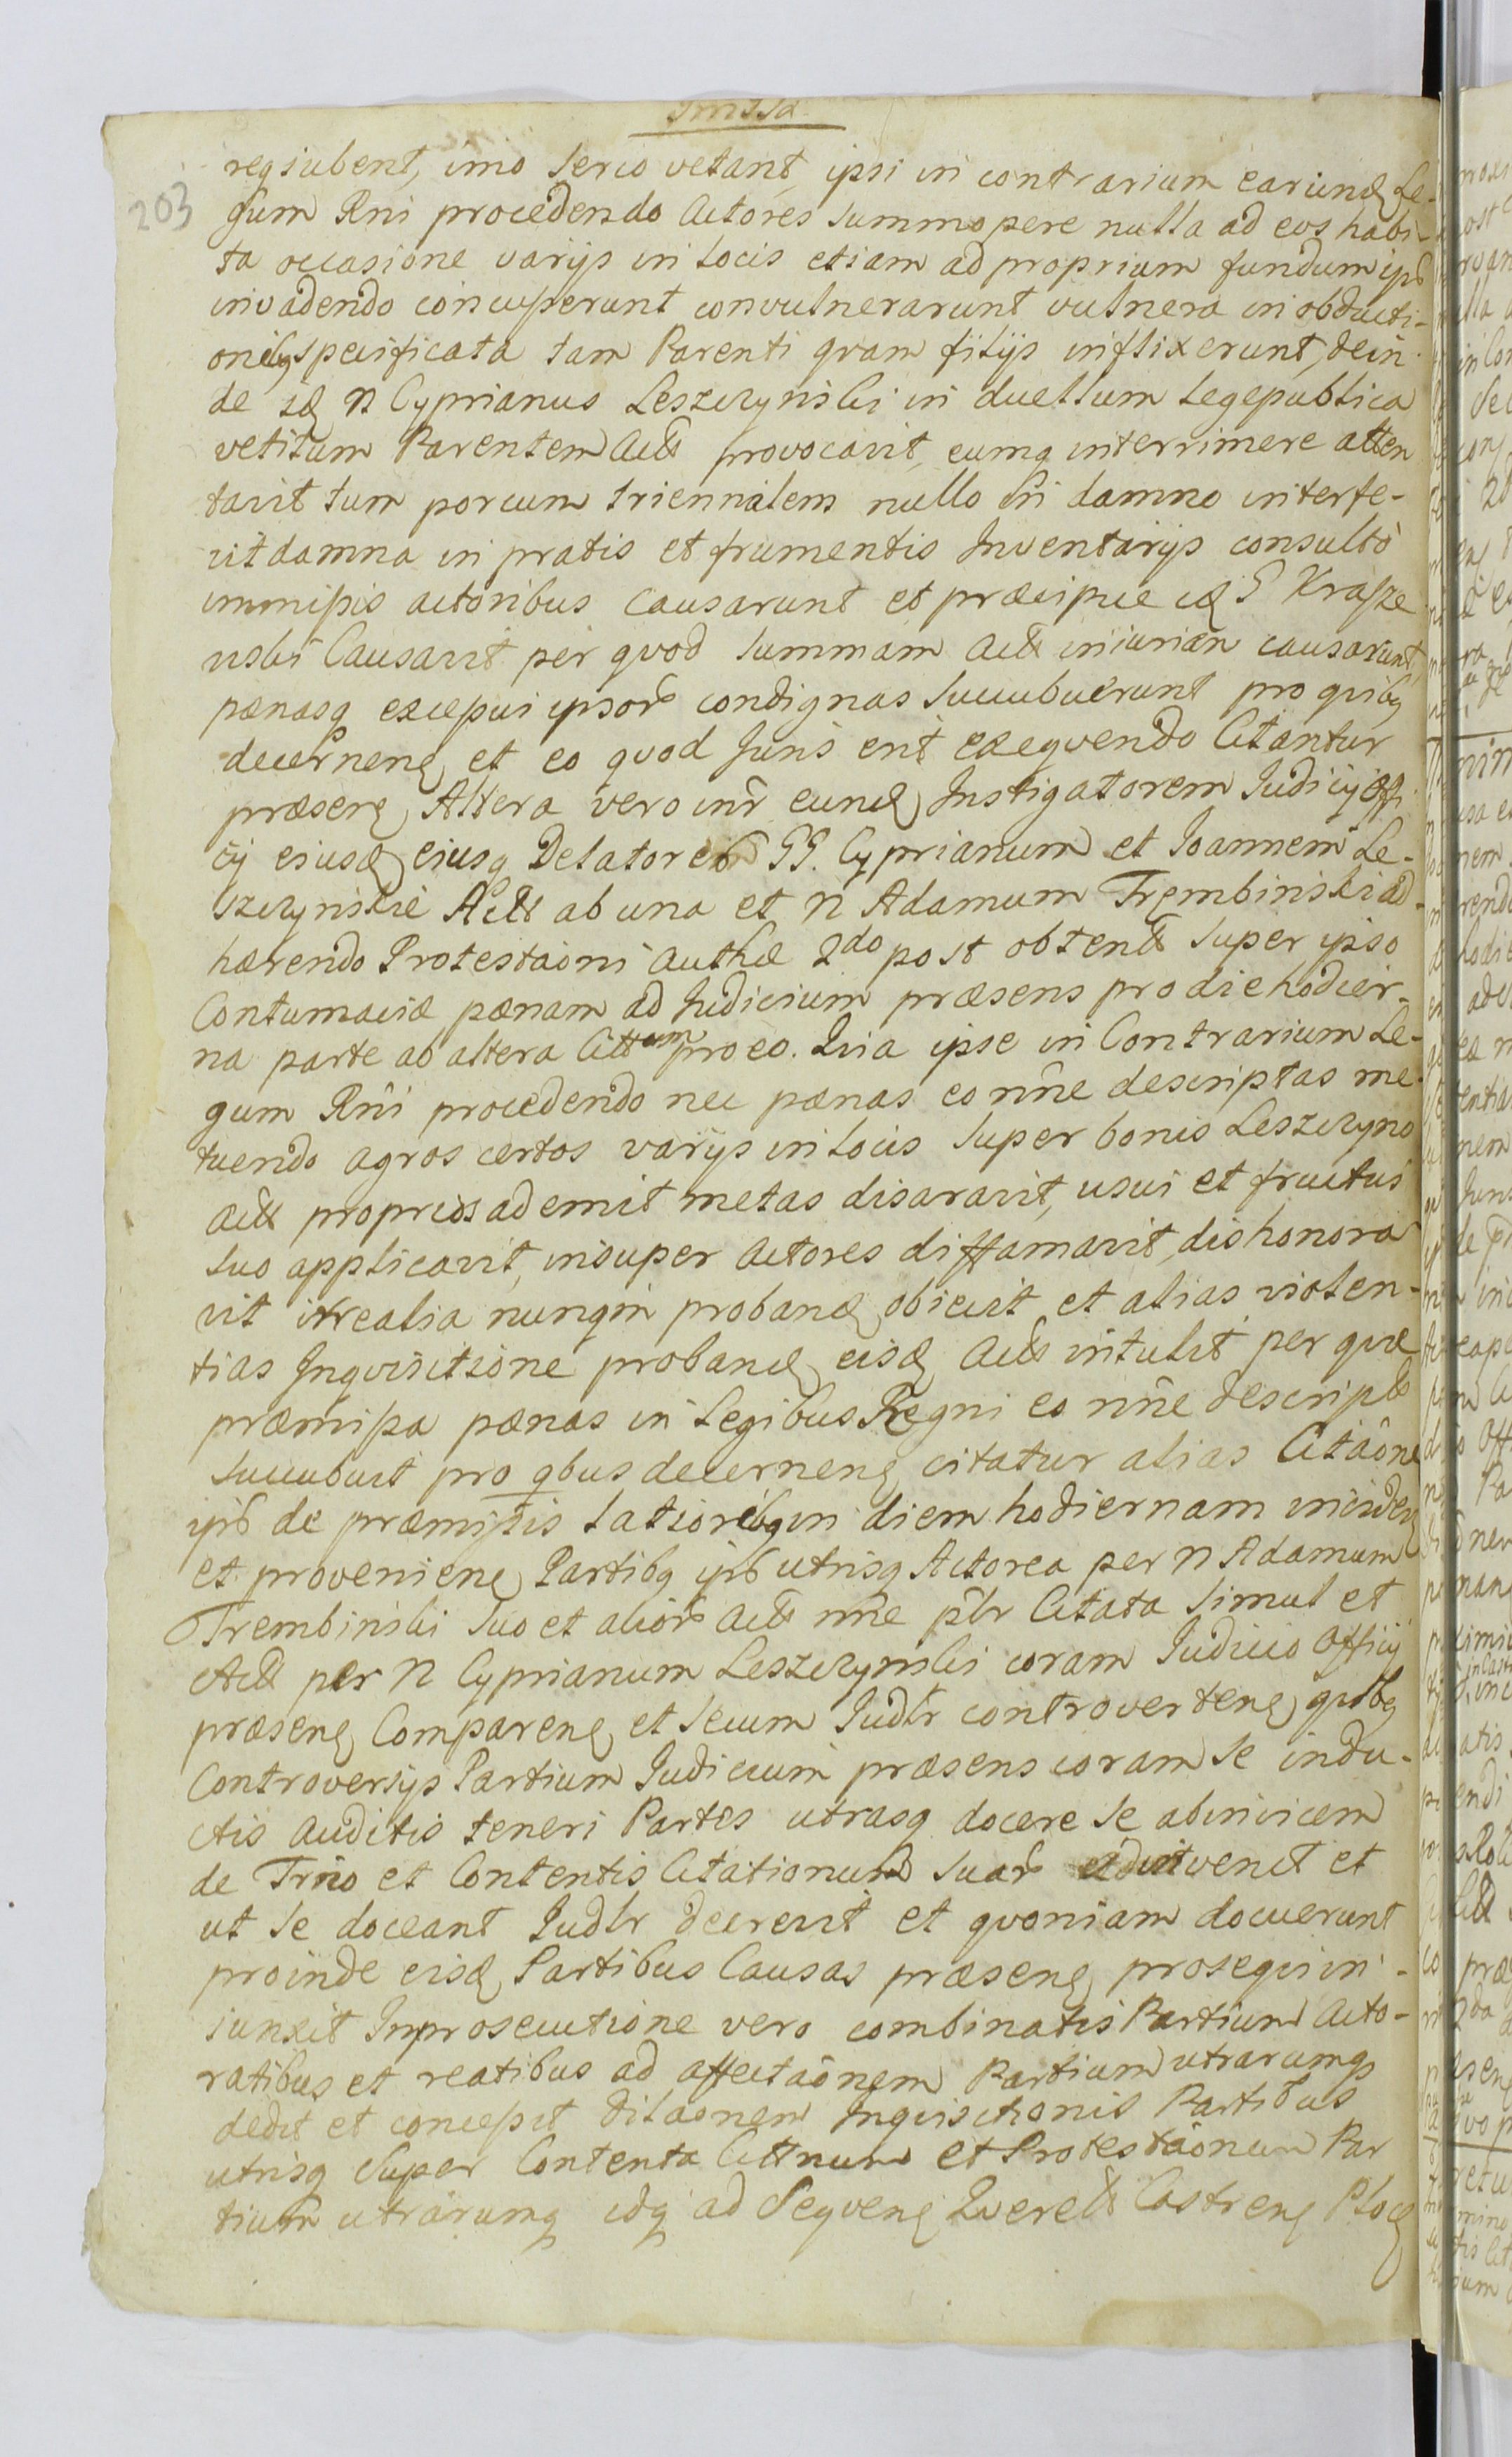 203
reqsubent, imo serio vetant ipsi in contrarium earund Le-
gum Rni procedendo Actores summopere nulla ad eos habi-
ta occasione varijs in locis etiam ad proprium fundum ips
invadendo concusserunt convulnerarunt vulnera in obducti-
onibq specificata tam Parenti qvam filijs inflixerunt, dein-
de id N Cyprianus Leszczynski in duellum Lege publica
vetitum Parentem Act provocavit eumq interrimere atten
tavit tum porcum triennalem nullo in damno interfe-
cit damna in pratis et frumentis Inventarijs consultò
immissis actoribus causarunt et præcipue id G Krasze
wski Causavit per qvod summam Act iniuriam causarunt
pænasq excessui ipsor condignas succubuerunt pro qvibq
decernen et eo qvod Juris erit exeqvendo Citantur
præsen Altera vero intr eund Instigatorem Judicij Offi
cij eiusd eiusq Delatores GG. Cyprianum et Joannem Le-
szczynskie Act ab una et N Adamum Trembinski ad-
hærendo Protestaoni Authæ 2do post obtent super ipso
Contumaciæ pænam ad Judicium præsens pro die hodier-
na parte ab altera Cittum pro eo. Qvia ipse in Contrarium Le-
gum Rni procedendo nec pænas eo nne descriptas me-
tuendo agros certos varijs in locis super bonis Leszczyno
Act proprios ademit metas disaravit, usui et fructui
suo applicavit, insuper Actores diffamavit, dishonora
vit irrealia nunqm proband obiecit et alias violen-
tias Inqvisitione proband eisd Act intulit per qvæ
præmissa pænas in Legibus Regni eo nne descript
succubuit pro qbus decernen citatur alias Citâone
ips de præmissis latioribq in diem hodiernam inciden
et provenien Partibq ips utrisq Actorea per N Adamum
Trembinski suo et alior Act nne pltr Citata simul et
Act per N Cyprianum Leszczynski coram Judicio Officij
præsen Comparen et secum Judlr controverten qvibq
Controversijs Partium Judicium præsens coram se indu-
ctis auditis teneri Partes utrasq docere se abinvicem
de Trno et Contentis Citationum suar advenit et
ut se doceant Judlr decrevit et qvoniam docuerunt
proinde eisd Partibus Causas præsen proseqvi in-
iunxit In prosecutione vero combinatis Partium Acto-
ratibus et reatibus ad affectâonem Partium utrarumq
dedit et concessit dilâonem Inqvisitionis Partibus
utrisq super Contenta Cittnum et Protestâonum Par
tium utrarumq idq ad seqven Qverel Castren Ploc